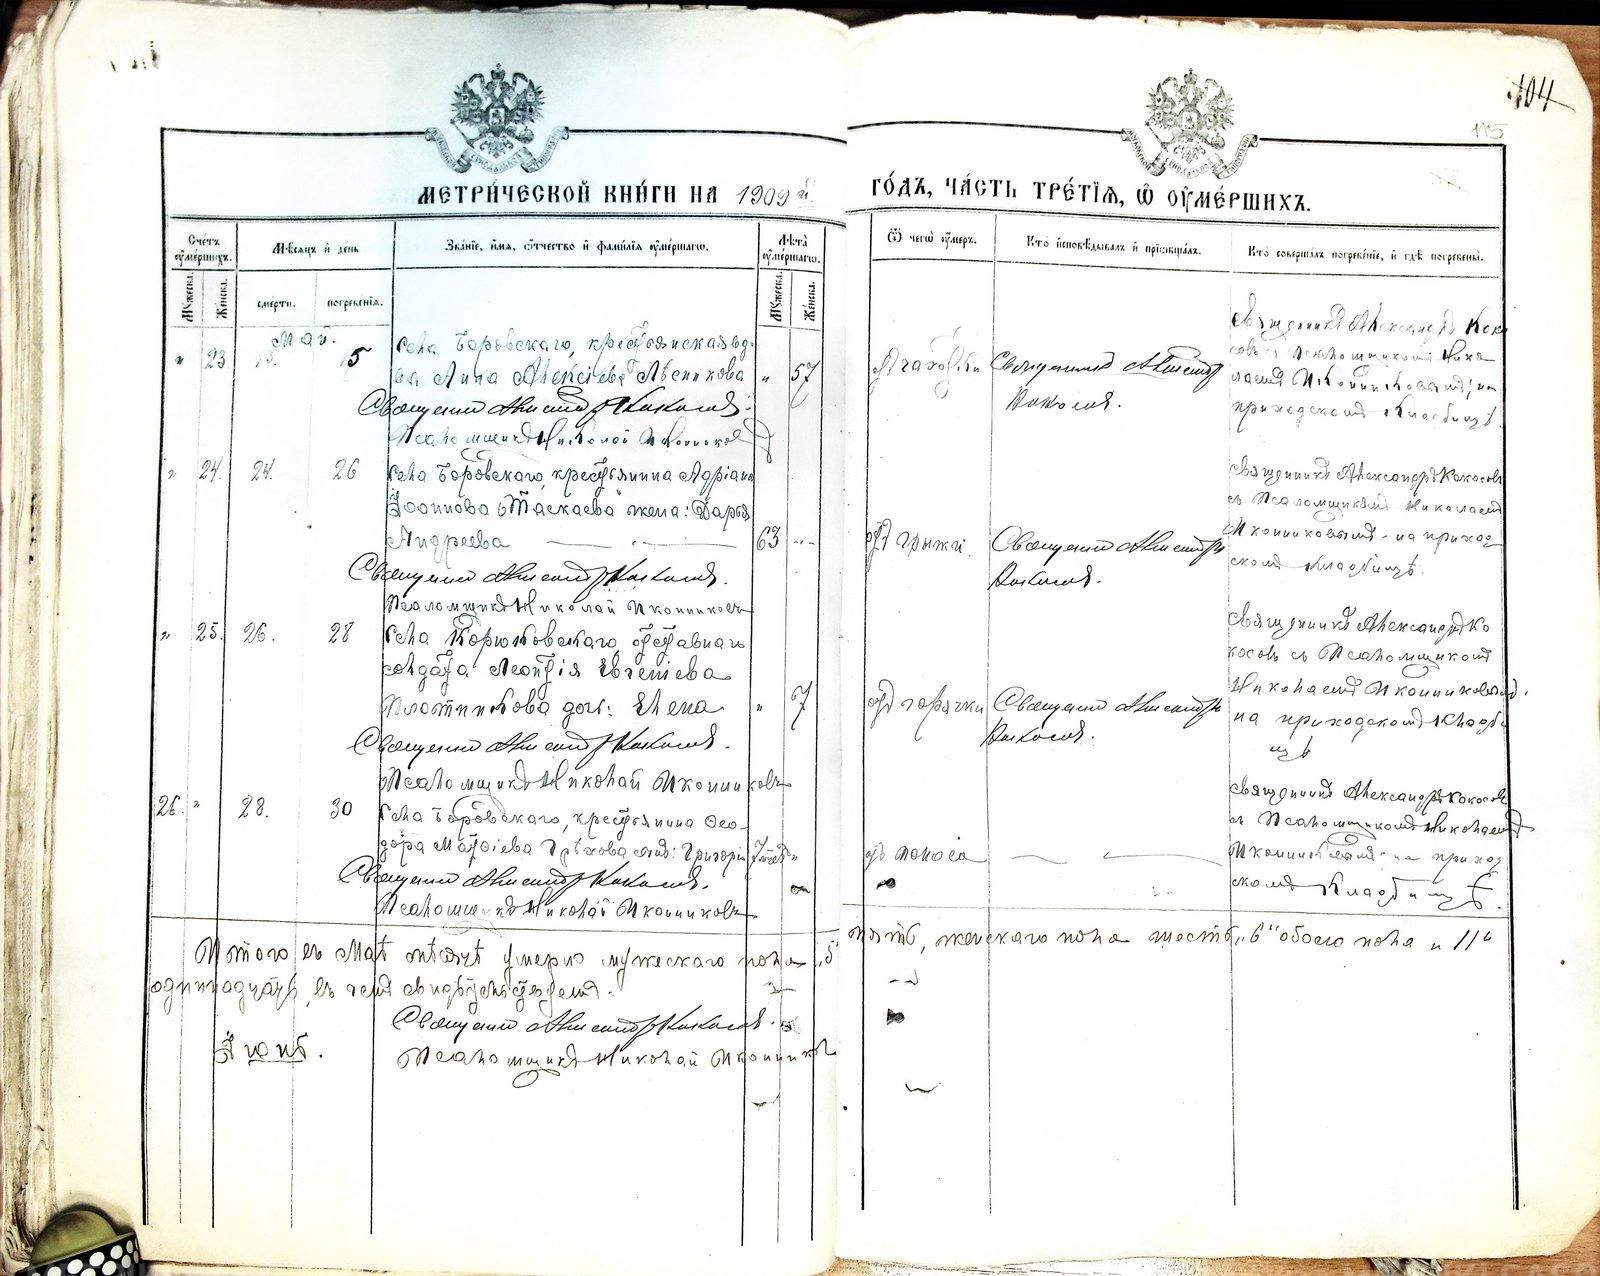 104
115
МЕТРИ́ЧЕСКОЙ КНИ́ГИ НА 1909 й
ГО́ДЪ, ЧА́СТЬ ТРЕ́ТІЯ, Ѿ ОУМЕ́РШИХЪ.
Счетъ оумершихъ.
Мѣсяцъ и день
Зва́ніе, и́мя, о́тчество и фами́лія оумершагѡ.
Лѣта оумершагѡ.
Ѿ чегѡ оумеръ.
Кто исповѣдывалъ и пріобщалъ.
Кто совершалъ погребеніе, и гдѣ погребены.
Мужеска.
Женска.
смерти.
погребенія.
Мужеска.
Женска.
Май.
" 23 15
Села Боровскаго, крестьянская вдо-
ва Анна Алексіева Лѣсникова
" 57
Священник Александр Кокосов.
Псаломщикъ Николай Иконников
Священник Александр
Кокосов.
Священникъ Александръ Коко
совъ съ Псаломщикомъ Нико
лаемъ Иконниковымъ, на
приходскомъ кладбищѣ.
" 24. 24. 26
Села Боровскаго, крестьянина Адріана
Іоаннова Таскаева жена: Дарья
Андреева
63
Священник Александр Кокосов.
Псаломщикъ Николай Иконниковъ
отъ грыжи.
Священник Александр
Кокосов.
Священникъ Александръ Кокосовъ
съ Псаломщикомъ Николаемъ
Иконниковымъ на приход
скомъ кладбищѣ.
" 25. 26. 28
Села Корюковскаго, отставнаго
солдата Леонтія Евгеніева
Плотникова дочь: Елена
" 7
Священник Александр Кокосов.
Псаломщикъ Николай Иконниковъ
отъ горячки
Священник Александр
Кокосов.
Священникъ Александръ Ко
косовъ съ Псаломщикомъ
Николаемъ Иконниковымъ.
на приходскомъ кладби
щѣ
26. " 28. 30
Села Боровскаго, крестьянина Ѳео-
дора Матѳіева Грѣхова сынъ: Григорій
7 мѣс "
Священник Александр Кокосов.
Псаломщикъ Николай Иконниковъ
отъ поноса
Священникъ Александръ Кокосовъ
съ Псаломщикомъ Николаемъ
Иконниковымъ на приход
скомъ кладбищѣ.
Итого въ Маѣ мѣсяцѣ умерло мужескаго пола "5" пять, женскаго пола шесть "6" обоего пола "11"
одиннадцать, въ чемъ свидѣтельствуемъ.
Священник Александр Кокосов.
Псаломщикъ Николай Иконниковъ
Іюнь.